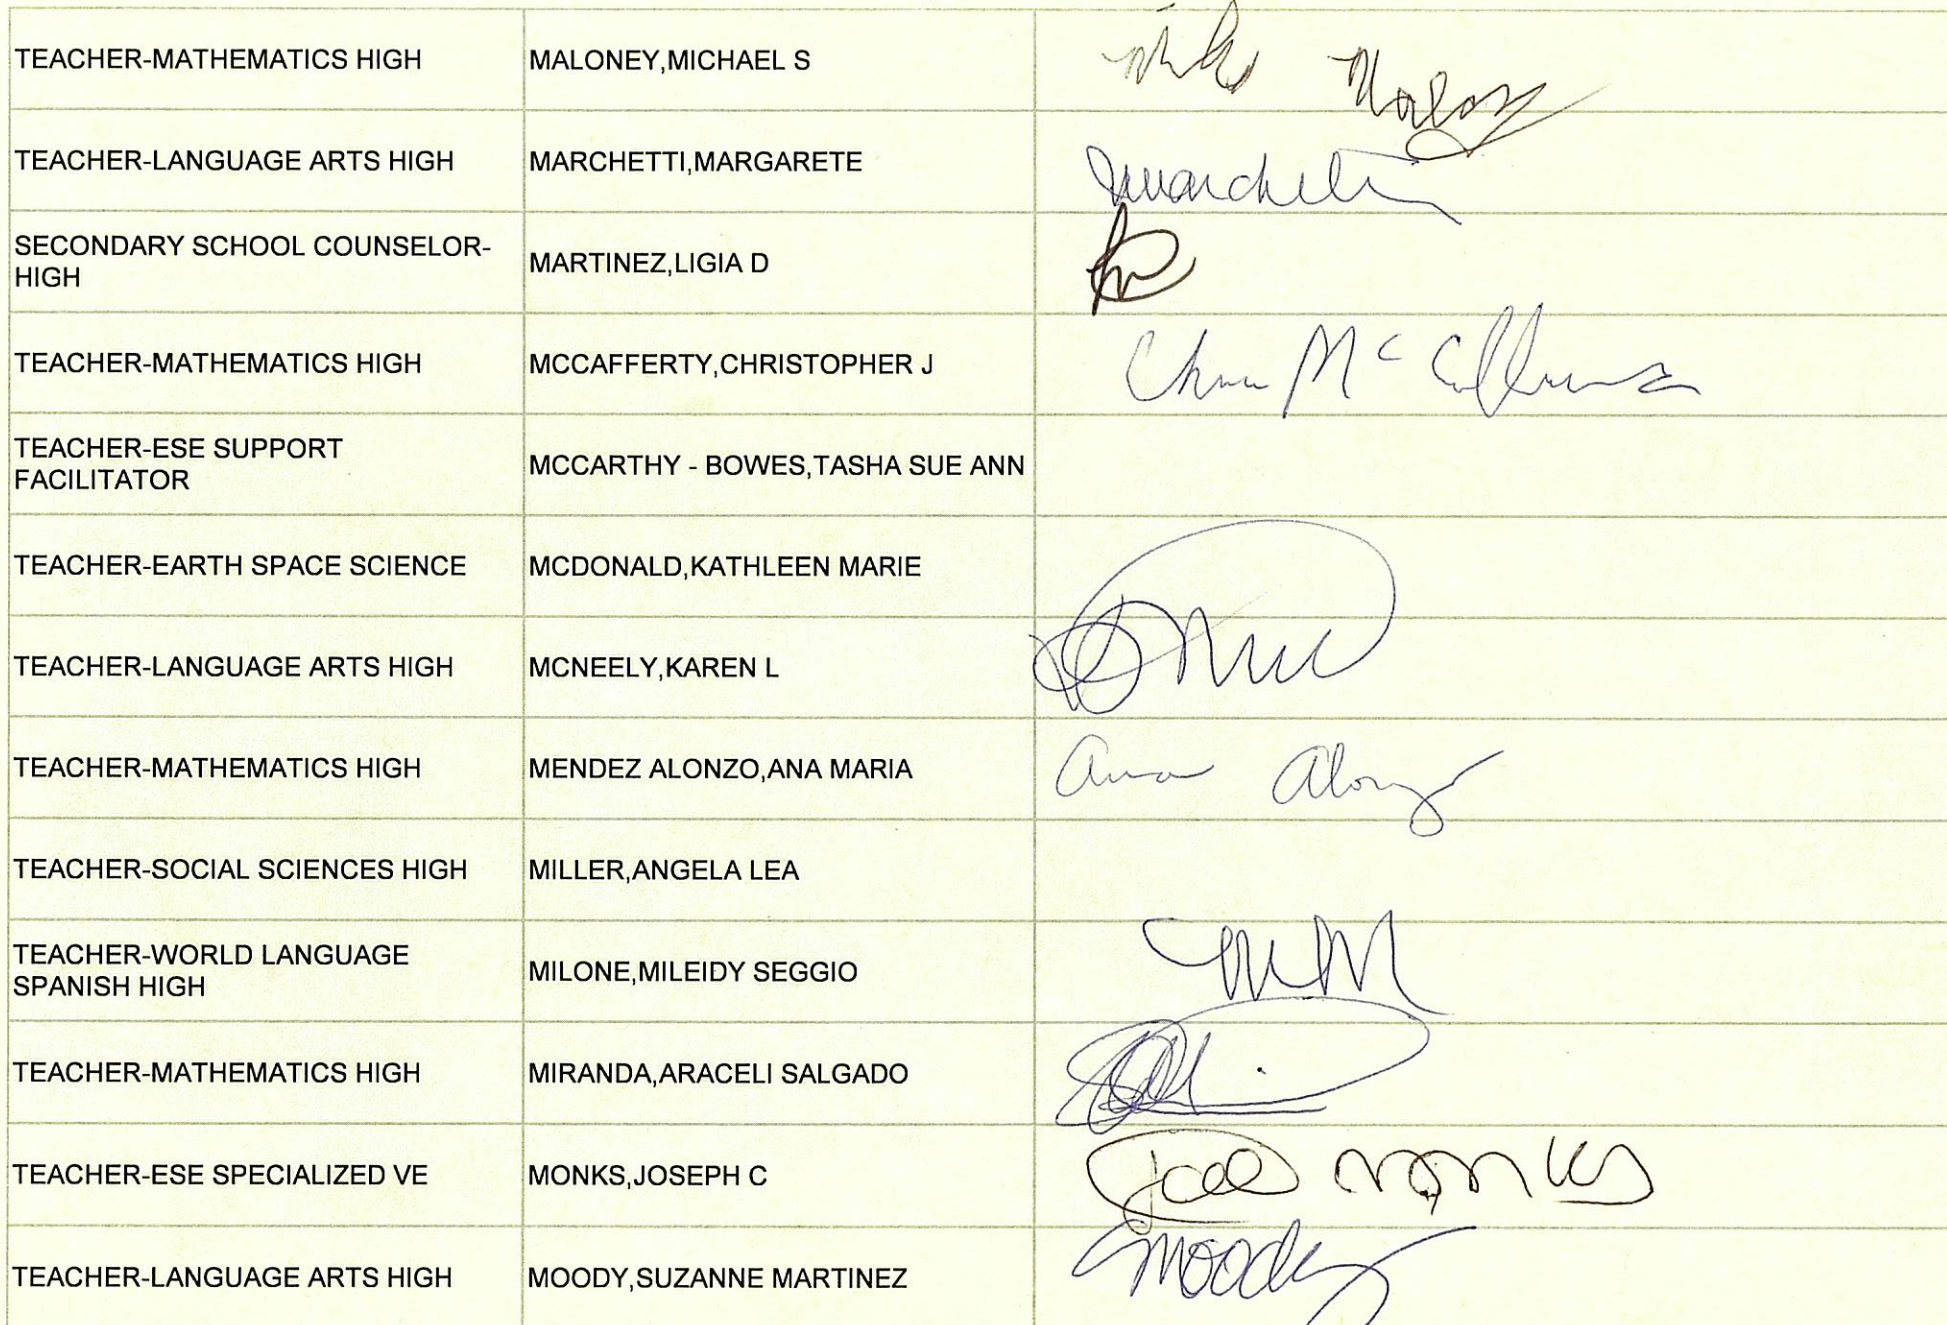 TEACHER-MATHEMATICS HIGH MALONEY,MICHAEL S Mike Maloney
TEACHER-LANGUAGE ARTS HIGH MARCHETTI,MARGARETE Mmarchetti
SECONDARY SCHOOL COUNSELOR-
HIGH MARTINEZ,LIGIA D
TEACHER-MATHEMATICS HIGH MCCAFFERTY,CHRISTOPHER J Chris McCafferty
TEACHER-ESE SUPPORT
FACILITATOR MCCARTHY - BOWES,TASHA SUE ANN
TEACHER-EARTH SPACE SCIENCE MCDONALD,KATHLEEN MARIE
TEACHER-LANGUAGE ARTS HIGH MCNEELY,KAREN L
TEACHER-MATHEMATICS HIGH MENDEZ ALONZO,ANA MARIA Ana Alonzo
TEACHER-SOCIAL SCIENCES HIGH MILLER,ANGELA LEA
TEACHER-WORLD LANGUAGE
SPANISH HIGH MILONE,MILEIDY SEGGIO MM
TEACHER-MATHEMATICS HIGH MIRANDA,ARACELI SALGADO
TEACHER-ESE SPECIALIZED VE MONKS,JOSEPH C Joe Monks
TEACHER-LANGUAGE ARTS HIGH MOODY,SUZANNE MARTINEZ Moody